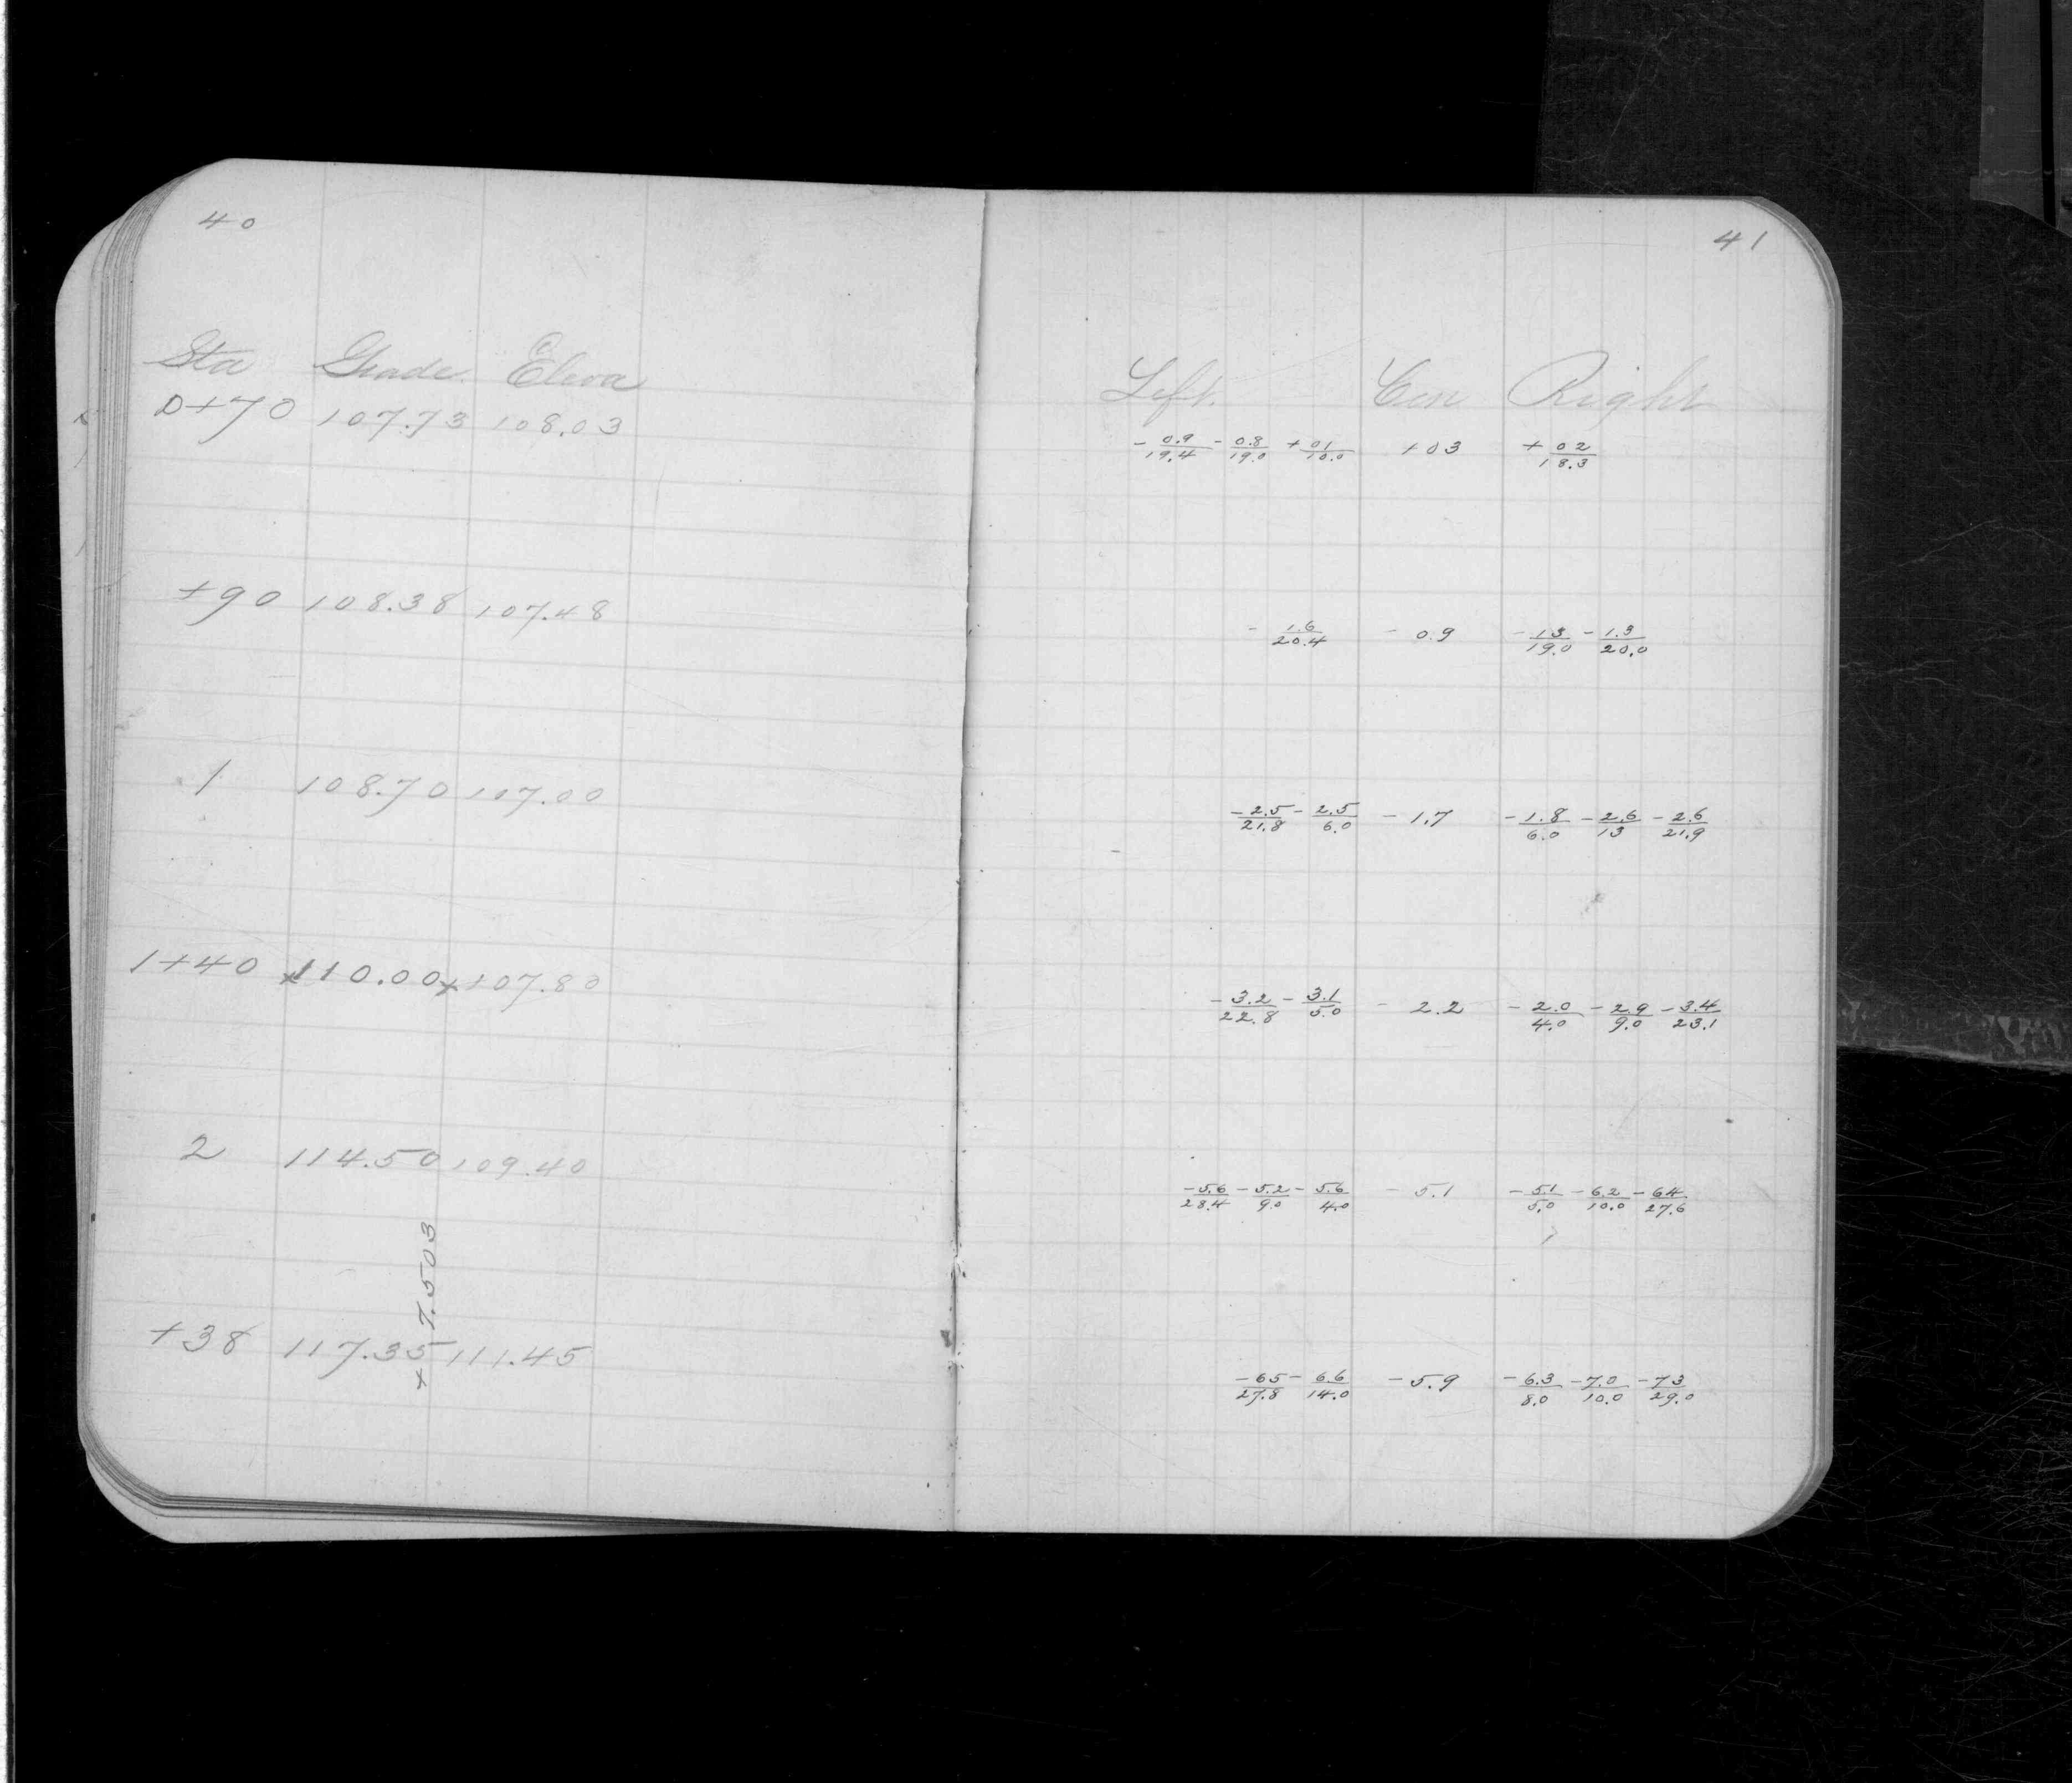 40
Sta Grade. Eleva
0+70 107.73 108.03
+90 108.38 107.48
1 108.70 107.00
1+40 x110.00x 107.80
2 114.50 109.40
+7.503
+38 117.35 111.45
41
Left. Cen Right
- 0.9/19.4 - 0.8/19.0 + 01/10.0 +03 + 02/18.3
- 1.6/20.4 - 0.9 - 13/19.0 - 1.3/20.0
- 2.5/21.8 - 2.5/6.0 - 1.7 - 1.8/6.0 - 2.6/13 - 2.6/21.9
- 3.2/22.8 - 3.1/5.0 - 2.2 - 2.0/4.0 - 2.9/9.0 - 3.4/23.1
- 5.6/28.4 - 5.2/9.0 - 5.6/4.0 - 5.1 - 5.1/5.0 - 6.2/10.0 - 64/27.6
- 65/27.8 - 6.6/14.0 - 5.9 - 6.3/8.0 - 7.0/10.0 - 73/29.0